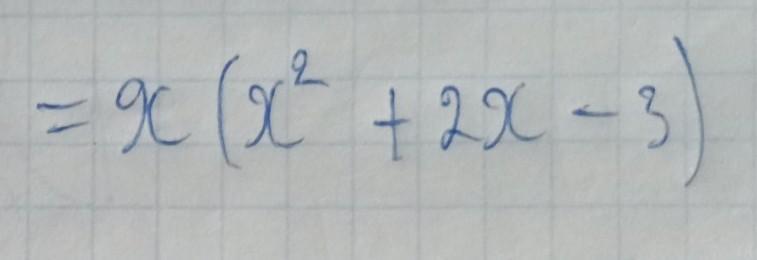 = x (x² + 2x - 3)